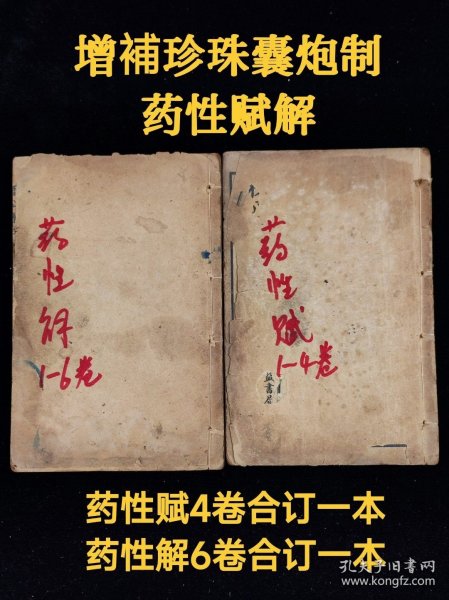 增補珍珠囊炮制
药性赋解
药性解
1-6卷
药性赋
1-4卷
益書局
药性赋4卷合订一本
药性解6卷合订一本
孔夫子旧书网
www.kongfz.com